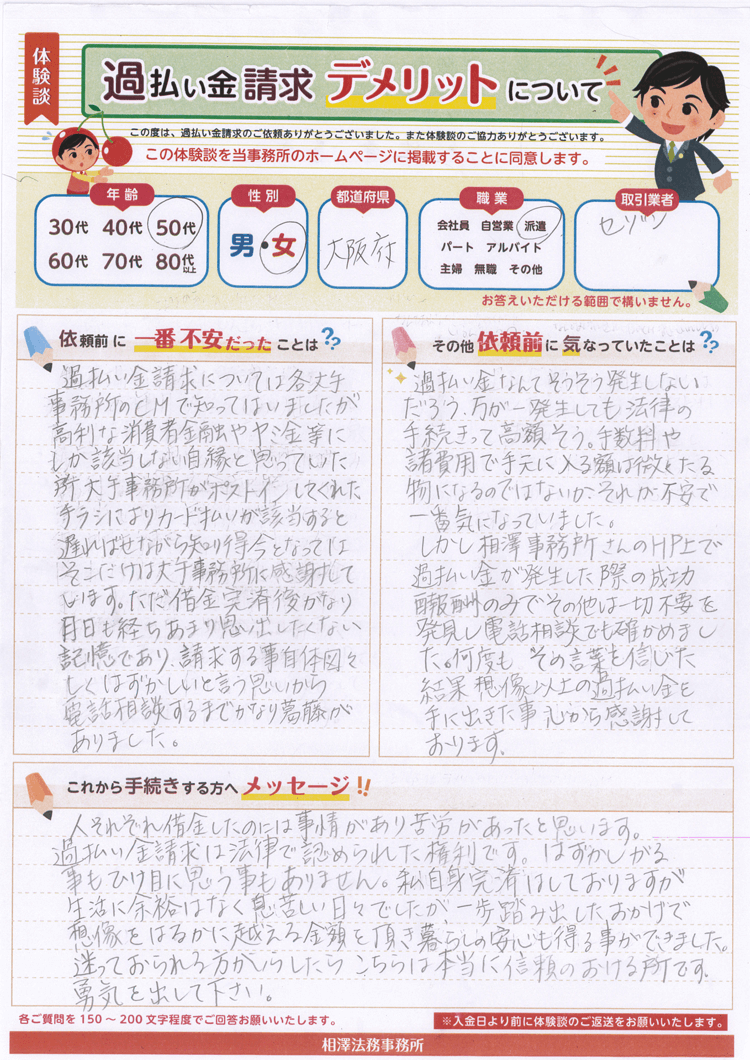 体験談
過払い金請求 デメリットについて
この度は、過払い金請求のご依頼ありがとうございました。また体験談のご協力ありがとうございます。
この体験談を当事務所のホームページに掲載することに同意します。
年齢
30代 40代 50代
60代 70代 80代以上
性別
男・女
都道府県
大阪府
職業
会社員 自営業 派遣
パート アルバイト
主婦 無職 その他
取引業者
セゾン
お答えいただける範囲で構いません。
依頼前に 一番不安だった ことは??
過払い金請求については各大手
事務所のCMで知ってはいましたが
高利な消費者金融やヤミ金等に
しか該当しない自縁と思っていた
所大手事務所がポストインしてくれた
チラシによりカード払いが該当すると
遅ればせながら知り得今となっては
そこだけは大手事務所に感謝して
います。ただ借金完済後かなり
月日も経ちあまり思い出したくない
記憶であり、請求する事自体図々
しくはずかしいと言う思いから
電話相談するまでかなり葛藤が
ありました。
その他 依頼前に気なっていたことは??
過払い金なんてそうそう発生しない
だろう、万が一発生しても法律の
手続きって高額そう。手数料や
諸費用で手元に入る額は微々たる
物になるのではないかそれが不安で
一番気になっていました。
しかし相澤事務所さんのHP上で
過払い金が発生した際の成功
酬のみでその他は一切不要を
発見し電話相談でも確かめまし
た。何度も その言葉を信じた
結果想像以上の過払い金を
手に出きた事 心から感謝して
おります。
これから手続きする方へ メッセージ!!
人それぞれ借金したのには事情があり苦労があったと思います。
過払い金請求は法律で認められた権利です。はずかしがる
事もひけ目に思う事もありません。私自身完済はしておりますが
生活に余裕はなく息苦しい日々でしたが、一歩踏み出したおかげで
想像をはるかに越える金額を頂き暮らしの安心も得る事ができました。
迷っておられる方がいらしたら こちらは本当に信頼のおける所です。
勇気を出して下さい。
各ご質問を150～200文字程度でご回答お願いいたします。
※入金日より前に体験談のご返送をお願いいたします。
相澤法務事務所